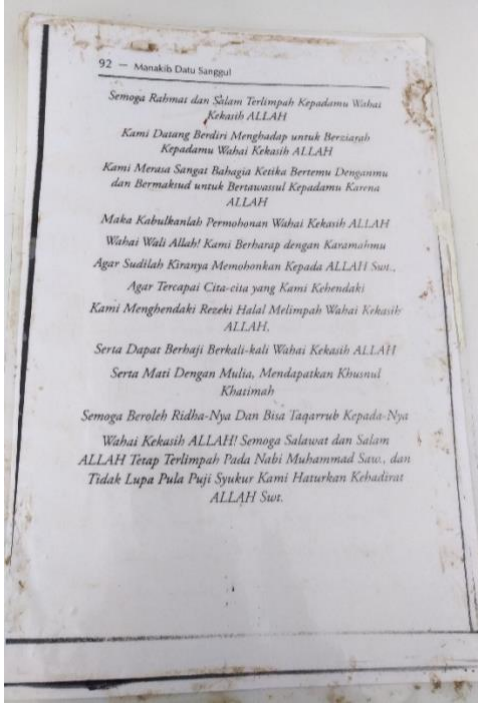 92 — Manakib Datu Sanggul
Semoga Rahmat dan Salam Terlimpah Kepadamu Wahai
Kekasih ALLAH
Kami Datang Berdiri Menghadap untuk Berziarah
Kepadamu Wahai Kekasih ALLAH
Kami Merasa Sangat Bahagia Ketika Bertemu Denganmu
dan Bermaksud untuk Bertawassul Kepadamu Karena
ALLAH
Maka Kabulkanlah Permohonan Wahai Kekasih ALLAH
Wahai Wali Allah! Kami Berharap dengan Karamahmu
Agar Sudilah Kiranya Memohonkan Kepada ALLAH Swt.,
Agar Tercapai Cita-cita yang Kami Kehendaki
Kami Menghendaki Rezeki Halal Melimpah Wahai Kekasih
ALLAH,
Serta Dapat Berhaji Berkali-kali Wahai Kekasih ALLAH
Serta Mati Dengan Mulia, Mendapatkan Khusnul
Khatimah
Semoga Beroleh Ridha-Nya Dan Bisa Taqarrub Kepada-Nya
Wahai Kekasih ALLAH! Semoga Salawat dan Salam
ALLAH Tetap Terlimpah Pada Nabi Muhammad Saw., dan
Tidak Lupa Pula Puji Syukur Kami Haturkan Kehadirat
ALLAH Swt.